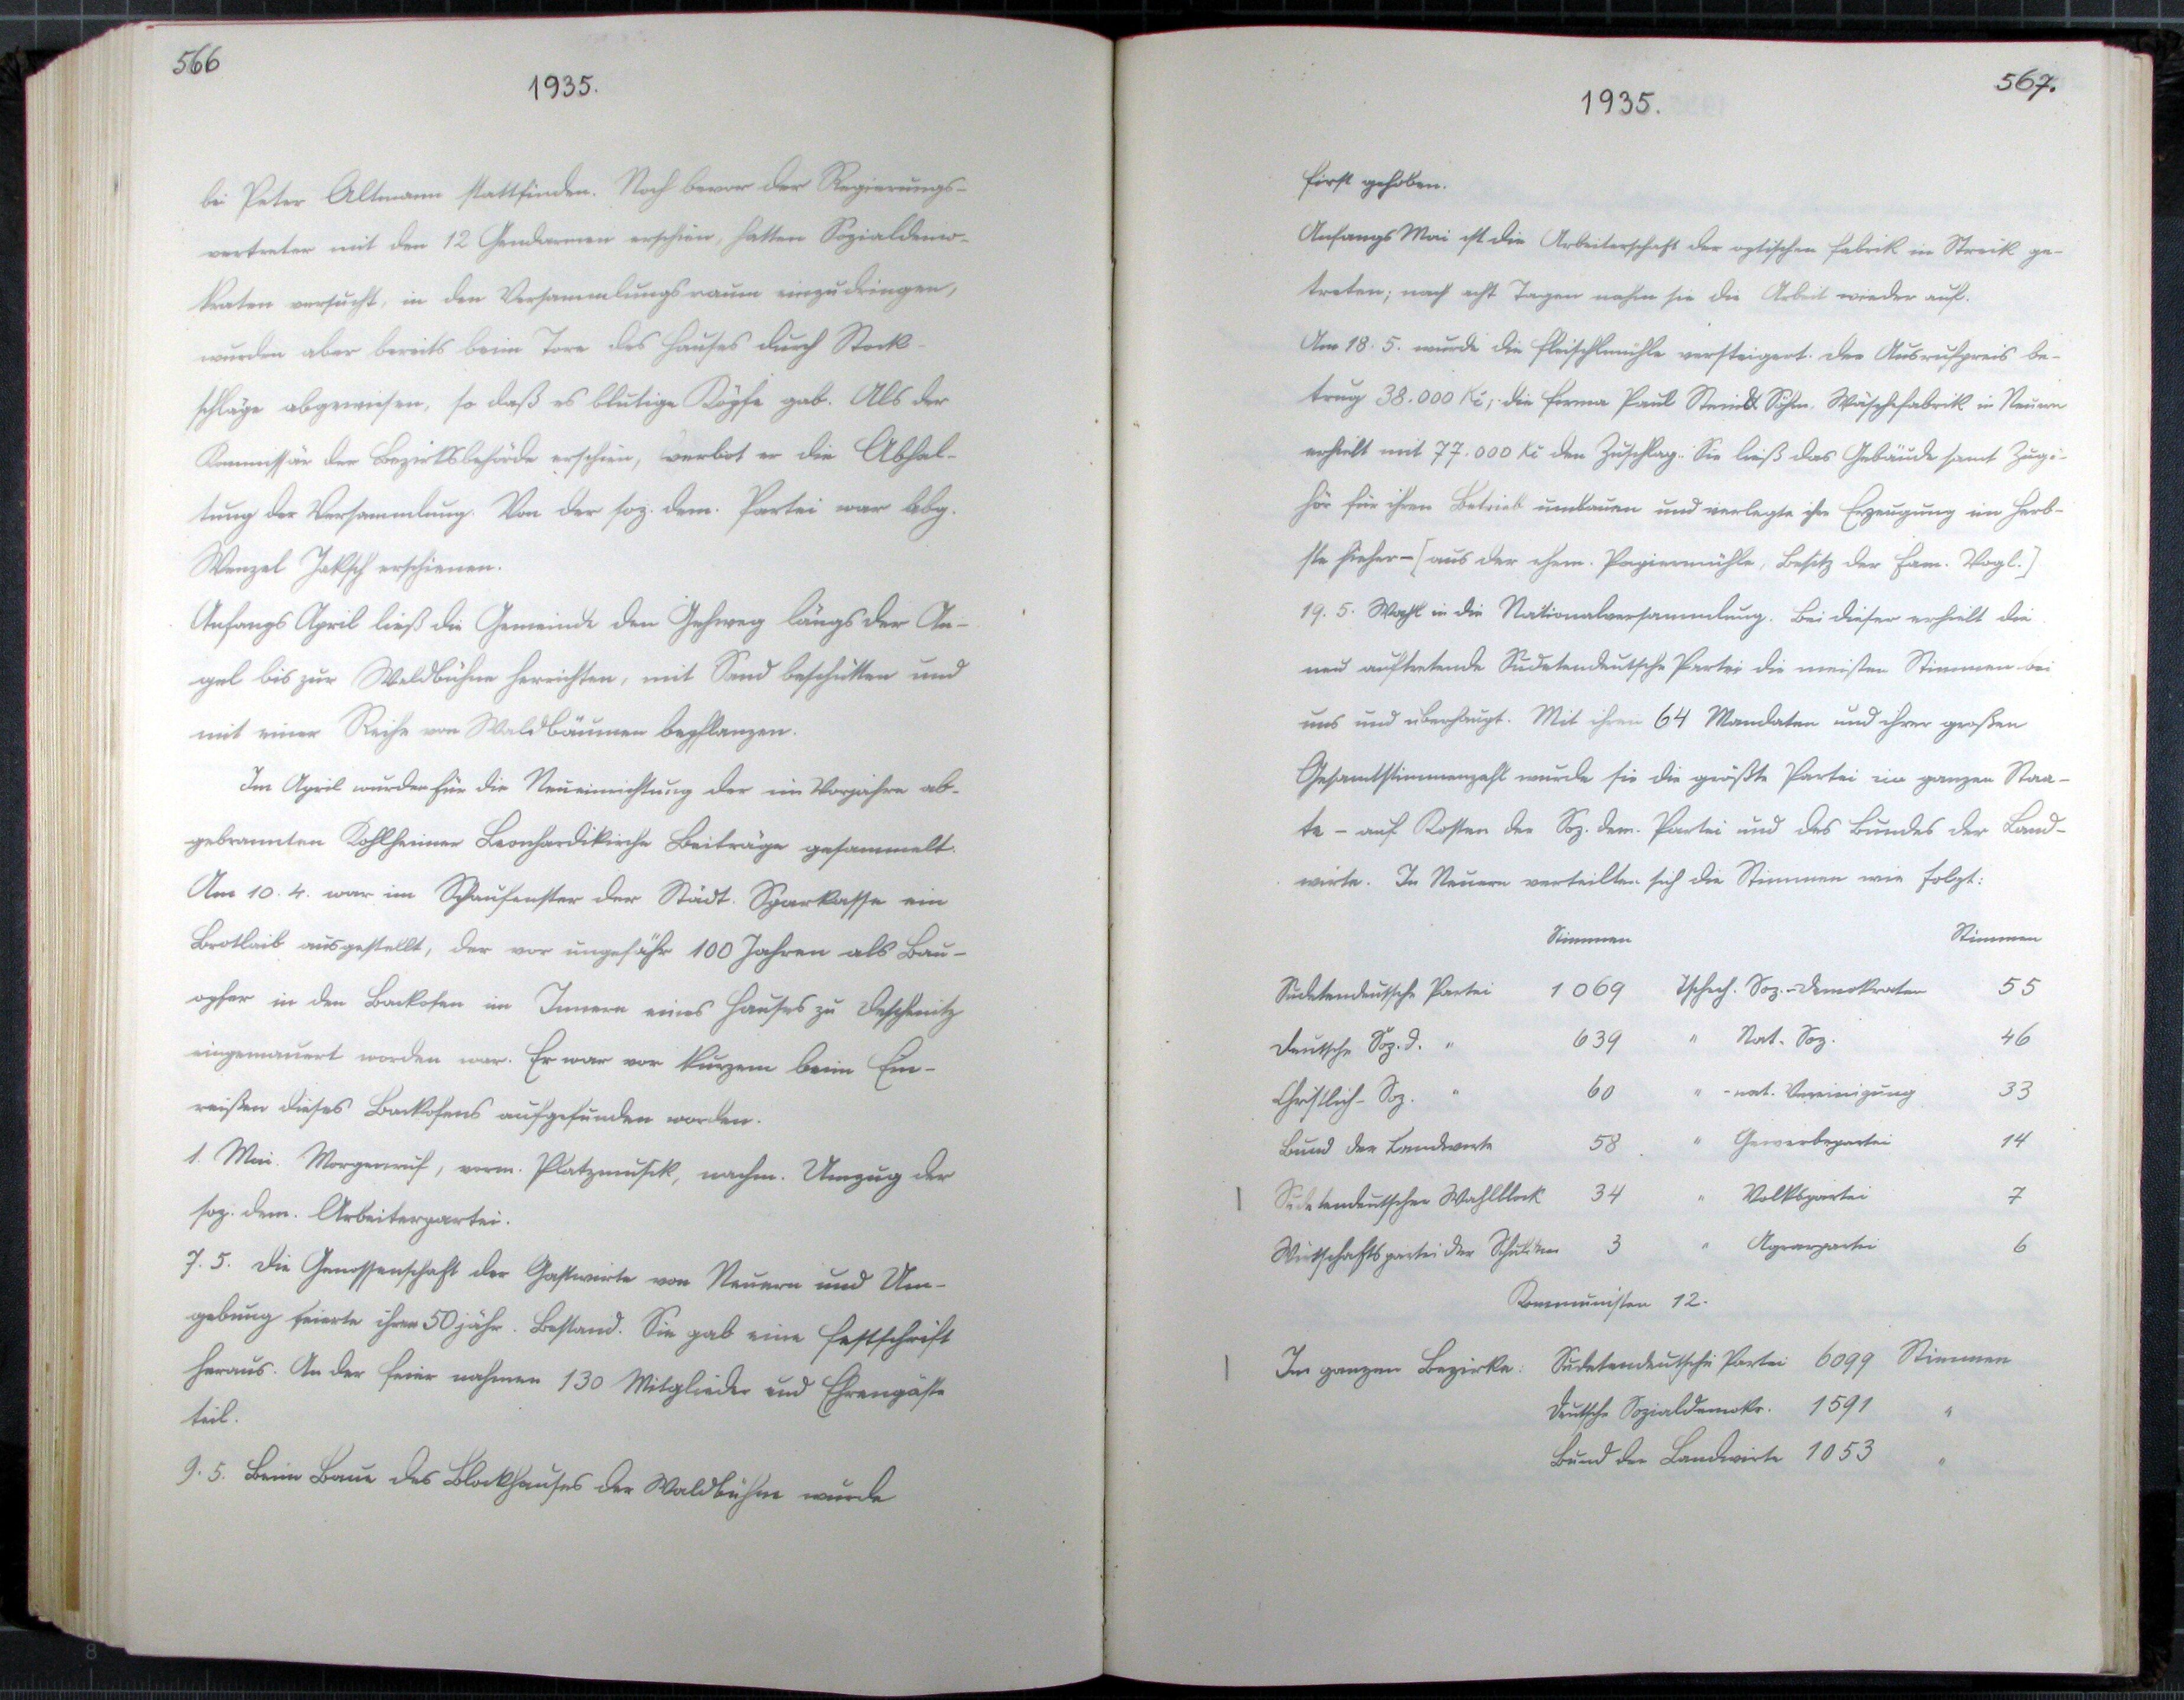 566
1935.
bei Peter Altmann stattfinden. Noch bevor der Regierungs-
vertreter mit den 12 Gendarmen erschien, hatten Sozialdemo-
kraten versucht, in den Versammlungsraum einzudringen,
wurden aber bereits beim Tore des Hauses durch Stock-
schläge abgewiesen, so daß es blutige Köpfe gab. Als der
Kommissär der Bezirksbehörde erschien, verbot er die Abhal-
tung der Versammlung. Von der soz. dem. Partei war Abg.
Wenzel Jaksch erschienen.
Anfangs April ließ die Gemeinde den Gehweg längs der An-
gel bis zur Waldbühne herrichten, mit Sand beschütten und
mit einer Reihe von Waldbäumen bepflanzen.
Im April wurden für die Neueinrichtung der im Vorjahre ab-
gebrannten Kohlheimer Leonhardikirche Beiträge gesammelt.
Am 10. 4. war im Schaufenster der Städt. Sparkasse ein
Brotlaib ausgestellt, der vor ungefähr 100 Jahren als Bau-
opfer in den Backofen im Innern eines Hauses zu Deschenitz
eingemauert worden war. Er war vor kurzem beim Ein-
reißen dieses Backofens aufgefunden worden.
1. Mai. Morgenruf, vorm. Platzmusik, nachm. Umzug der
soz. dem. Arbeiterpartei.
7. 5. Die Genossenschaft der Gastwirte von Neuern und Um-
gebung feierte ihren 50 jähr. Bestand. Sie gab eine Festschrift
heraus. An der Feier nahmen 130 Mitglieder und Ehrengäste
teil.
9. 5. Beim Baue des Blockhauses der Waldbühne wurde
567.
1935.
First gehoben.
Anfangs Mai ist die Arbeiterschaft der optischen Fabrik in Streik ge-
treten; nach acht Tagen nahm sie die Arbeit wieder auf.
Am 18. 5. wurde die Fleischlmühle versteigert. Der Ausrufpreis be-
trug 38.000 Kč; die Firma Paul Steindl Söhne, Wäschefabrik in Neuern
erhielt mit 77.000 Kč den Zuschlag. Sie ließ das Gebäude samt Zuge-
hör für ihren Betrieb umbauen und verlegte ihre Erzeugung im Herb-
ste hieher - [aus der ehem. Papiermühle, Besitz der Fam. Vogl.]
19. 5. Wahl in die Nationalversammlung. Bei dieser erhielt die
neu auftretende Sudetendeutsche Partei die meisten Stimmen bei
uns und überhaupt. Mit ihren 64 Mandaten und ihrer großen
Gesamtstimmenzahl wurde sie die größte Partei im ganzen Staa-
te - auf Kosten der Soz. dem. Partei und des Bundes der Land-
wirte. In Neuern verteilten sich die Stimmen wie folgt:
Stimmen Stimmen
Sudetendeutsche Partei 1 069 Tschech. Soz.-Demokraten 55
Deutsche Soz. d. " 639 " Nat. Soz. 46
Christlich-Soz. " 60 " - nat. Vereinigung 33
Bund der Landwirte 58 " Gewerbepartei 14
Sudetendeutscher Wahlblock 34 " Volkspartei 7
Wirtschaftspartei der 3 " Agrarpartei 6
Kommunisten 12.
Im ganzen Bezirke: Sudetendeutsche Partei 6099 Stimmen
Deutsche Sozialdemokr. 1591 "
Bund der Landwirte 1053 "